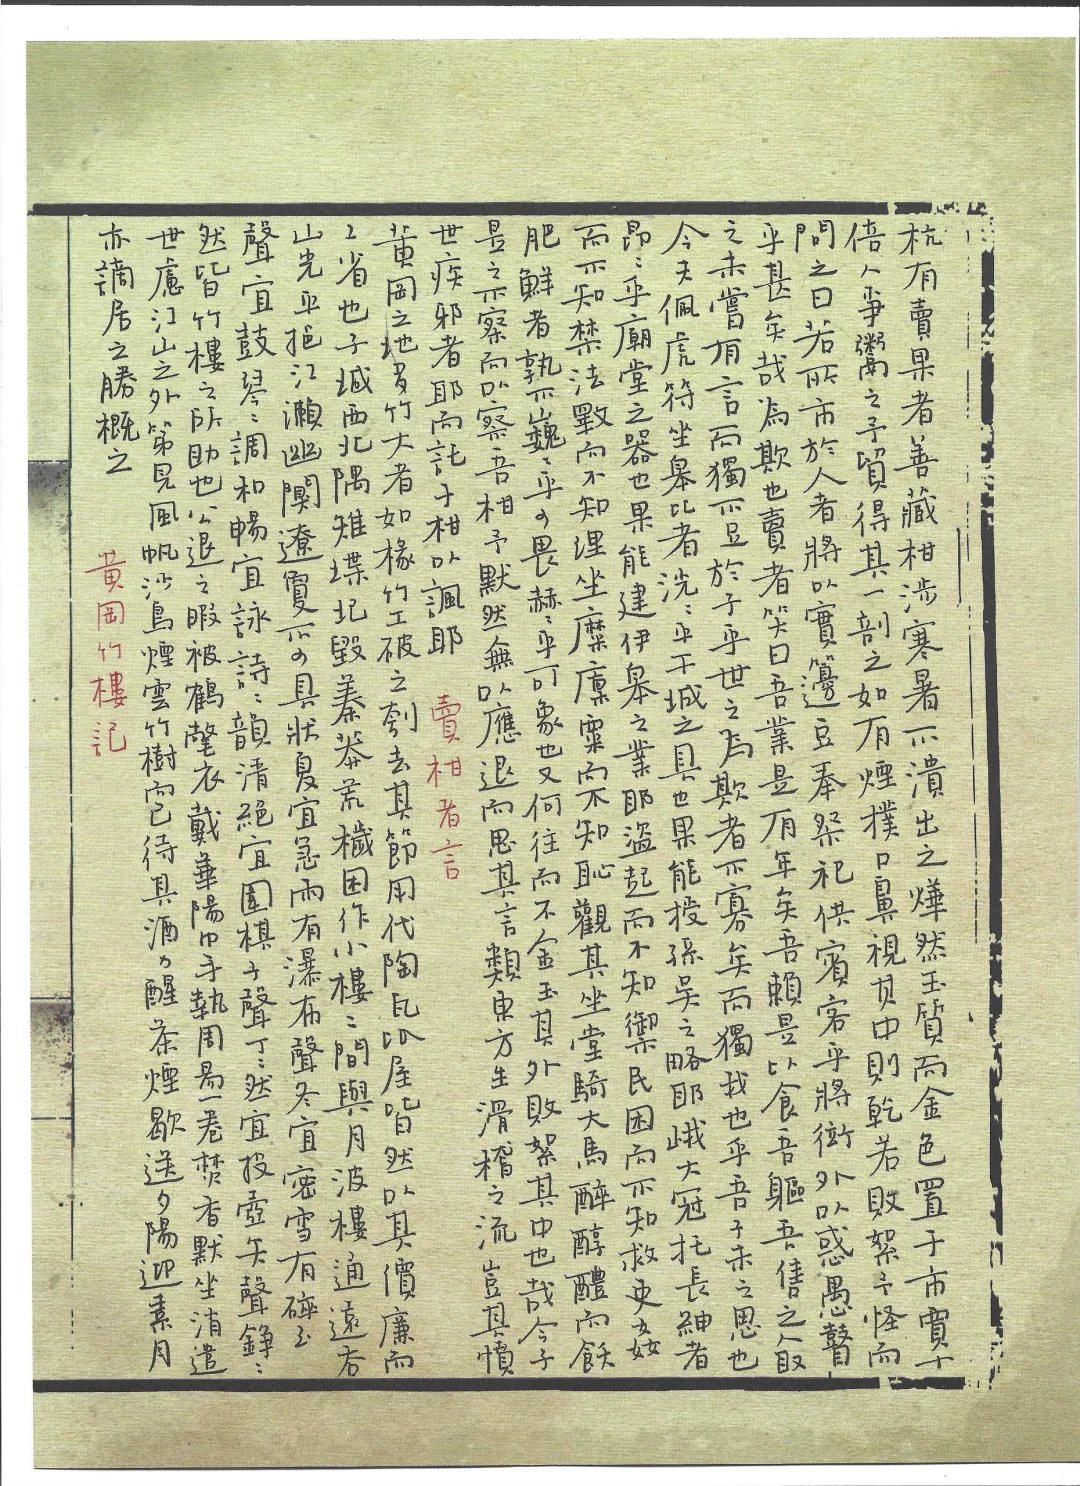 杭有賣果者善藏柑涉寒暑不潰出之燁然玉質而金色置于市賈十
倍人爭鬻之予貿得其一剖之如有煙撲口鼻視其中則乾若敗絮予怪而
問之曰若所市於人者將以實籩豆奉祭祀供賓客乎將衒外以惑愚瞽
乎甚矣哉為欺也賣者笑曰吾業是有年矣吾賴是以食吾軀吾售之人取
之未嘗有言而獨不足於子乎世之為欺者不寡矣而獨我也乎吾子未之思也
今夫佩虎符坐皋比者洸ミ乎干城之具也果能授孫吳之略耶峨大冠拖長紳者
昂ミ乎廟堂之器也果能建伊皋之業耶盜起而不知禦民困而不知救吏奸
而不知禁法斁而不知理坐糜廩粟而不知恥觀其坐堂騎大馬醉醇醴而飫
肥鮮者孰不巍ミ乎可畏赫ミ乎可象也又何往而不金玉其外敗絮其中也哉今子
是之不察而以察吾柑予默然無以應退而思其言類東方生滑稽之流豈其憤
世疾邪者耶而託于柑以諷耶 賣柑者言
黃岡之地多竹大者如椽竹工破之刳去其節用代陶瓦比屋皆然以其價廉而
工省也子城西北隅雉堞圮毀蓁莽荒穢因作小樓ミ間與月波樓通遠吞
山光平挹江瀨幽闃遼敻不可具狀夏宜急雨有瀑布聲冬宜密雪有碎玉
聲宜鼓琴ミ調和暢宜詠詩ミ韻清絕宜圍棋子聲丁ミ然宜投壺矢聲錚ミ
然皆竹樓之所助也公退之暇被鶴氅衣戴華陽巾手執周易一卷焚香默坐消遣
世慮江山之外第見風帆沙鳥煙雲竹樹而已待其酒力醒茶煙歇送夕陽迎素月
亦謫居之勝概之 黃岡竹樓記